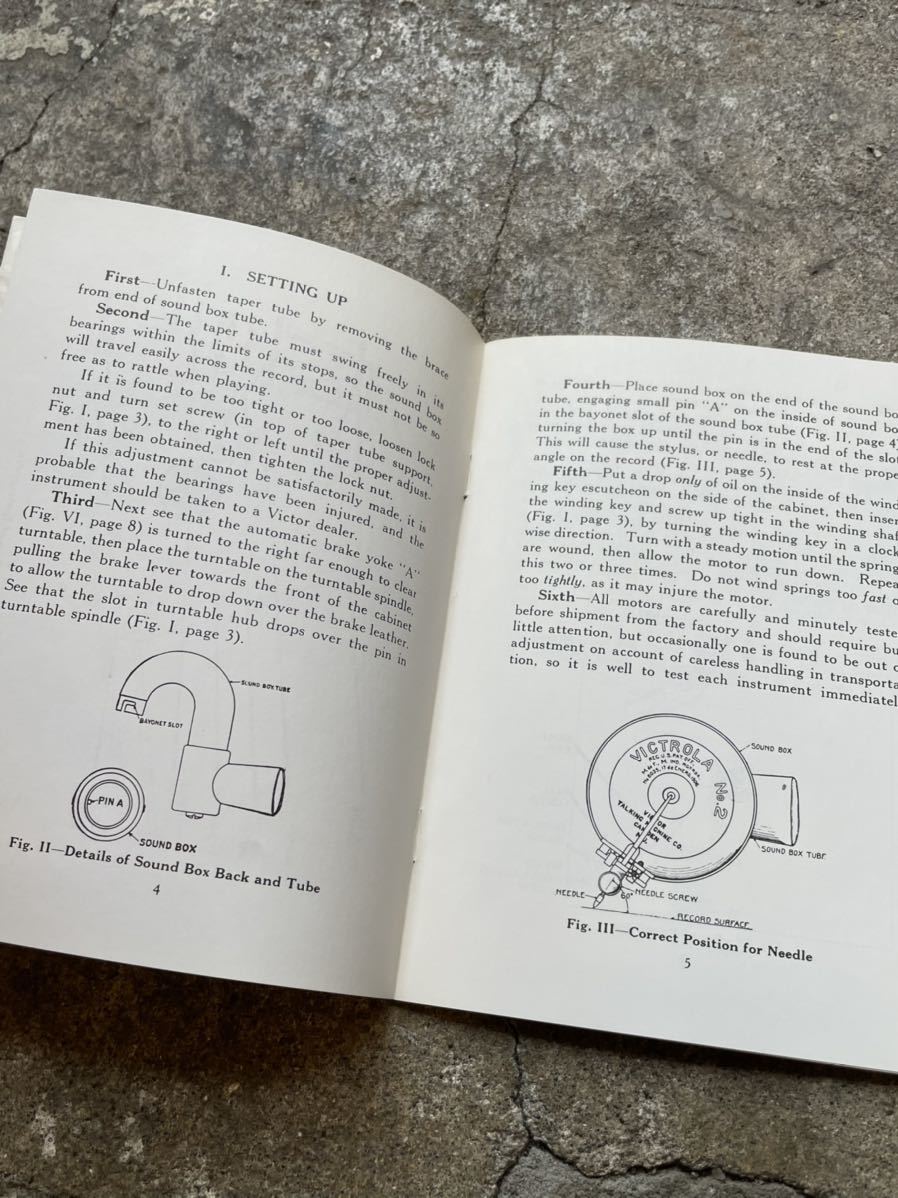 I. SETTING UP
First—Unfasten taper tube by removing the brace
from end of sound box tube.
Second—The taper tube must swing freely in its
bearings within the limits of its stops, so the sound box
will travel easily across the record, but it must not be so
free as to rattle when playing.
If it is found to be too tight or too loose, loosen lock
nut and turn set screw (in top of taper tube support,
Fig. I, page 3), to the right or left until the proper adjust-
ment has been obtained, then tighten the lock nut.
If this adjustment cannot be satisfactorily made, it is
probable that the bearings have been injured, and the
instrument should be taken to a Victor dealer.
Third—Next see that the automatic brake yoke "A"
(Fig. VI, page 8) is turned to the right far enough to clear
turntable, then place the turntable on the turntable spindle,
pulling the brake lever towards the front of the cabinet
to allow the turntable to drop down over the brake leather.
See that the slot in turntable hub drops over the pin in
turntable spindle (Fig. I, page 3).
SOUND BOX TUBE
BAYONET SLOT
PIN A
SOUND BOX
Fig. II—Details of Sound Box Back and Tube
4
Fourth—Place sound box on the end of the sound bo
tube, engaging small pin "A" on the inside of sound bo
in the bayonet slot of the sound box tube (Fig. II, page 4)
turning the box up until the pin is in the end of the slot
This will cause the stylus, or needle, to rest at the prope
angle on the record (Fig. III, page 5).
Fifth—Put a drop only of oil on the inside of the wind
ing key escutcheon on the side of the cabinet, then inser
the winding key and screw up tight in the winding shaf
(Fig. I, page 3), by turning the winding key in a clock
wise direction. Turn with a steady motion until the spring
are wound, then allow the motor to run down. Repea
this two or three times. Do not wind springs too fast o
too tightly, as it may injure the motor.
Sixth—All motors are carefully and minutely teste
before shipment from the factory and should require bu
little attention, but occasionally one is found to be out o
adjustment on account of careless handling in transporta
tion, so it is well to test each instrument immediatel
VICTROLA No. 2
REG. U.S. PAT. OFF.
VICTOR
TALKING MACHINE CO.
CAMDEN
N.J.
SOUND BOX
SOUND BOX TUBE
NEEDLE
60°
NEEDLE SCREW
RECORD SURFACE
Fig. III—Correct Position for Needle
5